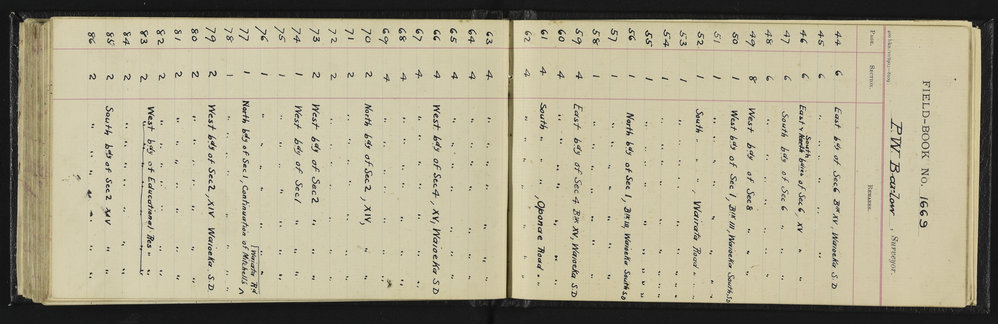 FIELD-BOOK NO. 1669
P.W Barlow, Surveyor.
PAGE. SECTION. REMARKS.
44 6 East bdy of Sec 6 Blk XV, Waioeka S.D
45 6 " " " " " "
46 6 East & North bdies of Sec 6, XV "
South
47 6 South bdy of Sec 6 " "
48 6 " " " " " "
49 8 West bdy of Sec 8 " "
50 1 West bdy of Sec 1, Blk III, Waioeka South S.D
51 1 " " " " " "
52 1 South " " , Wairata Road " "
53 1 " " " " " "
54 1 " " " " " "
55 1 " " " " " "
56 1 North bdy of Sec 1, Blk III, Waioeka South S.D
57 1 " " " " " "
58 1 " " " " " "
59 4 East bdy of Sec 4 Blk XV, Waioeka S.D
60 4 " " " " " "
61 4 South " " " , Oponae Road " "
62 4 " " " " " "
63 4 " " " " " "
64 4 " " " " " "
65 4 " " " " " "
66 4 West bdy of Sec 4, XV, Waioeka S.D
67 4 " " " " " "
68 4 " " " " " "
69 4 " " " " " "
70 2 North bdy of Sec 2, XIV, "
71 2 " " " " " "
72 2 " " " " " "
73 2 West bdy of Sec 2 " "
74 1 West bdy of Sec 1 " "
75 1 " " " " " "
76 1 " " " " " "
Wairata Rd
77 1 North bdy of Sec 1, Continuation of Mitchells ^
78 1 " " " " " "
79 2 West bdy of Sec 2, XIV Waioeka S.D
80 2 " " " " " "
81 2 " " " " " "
82 2 " " " " " "
83 2 West bdy of Educational Res " "
84 2 " " " " " "
85 2 South bdy of Sec 2 XIV " "
86 2 " " " " " "